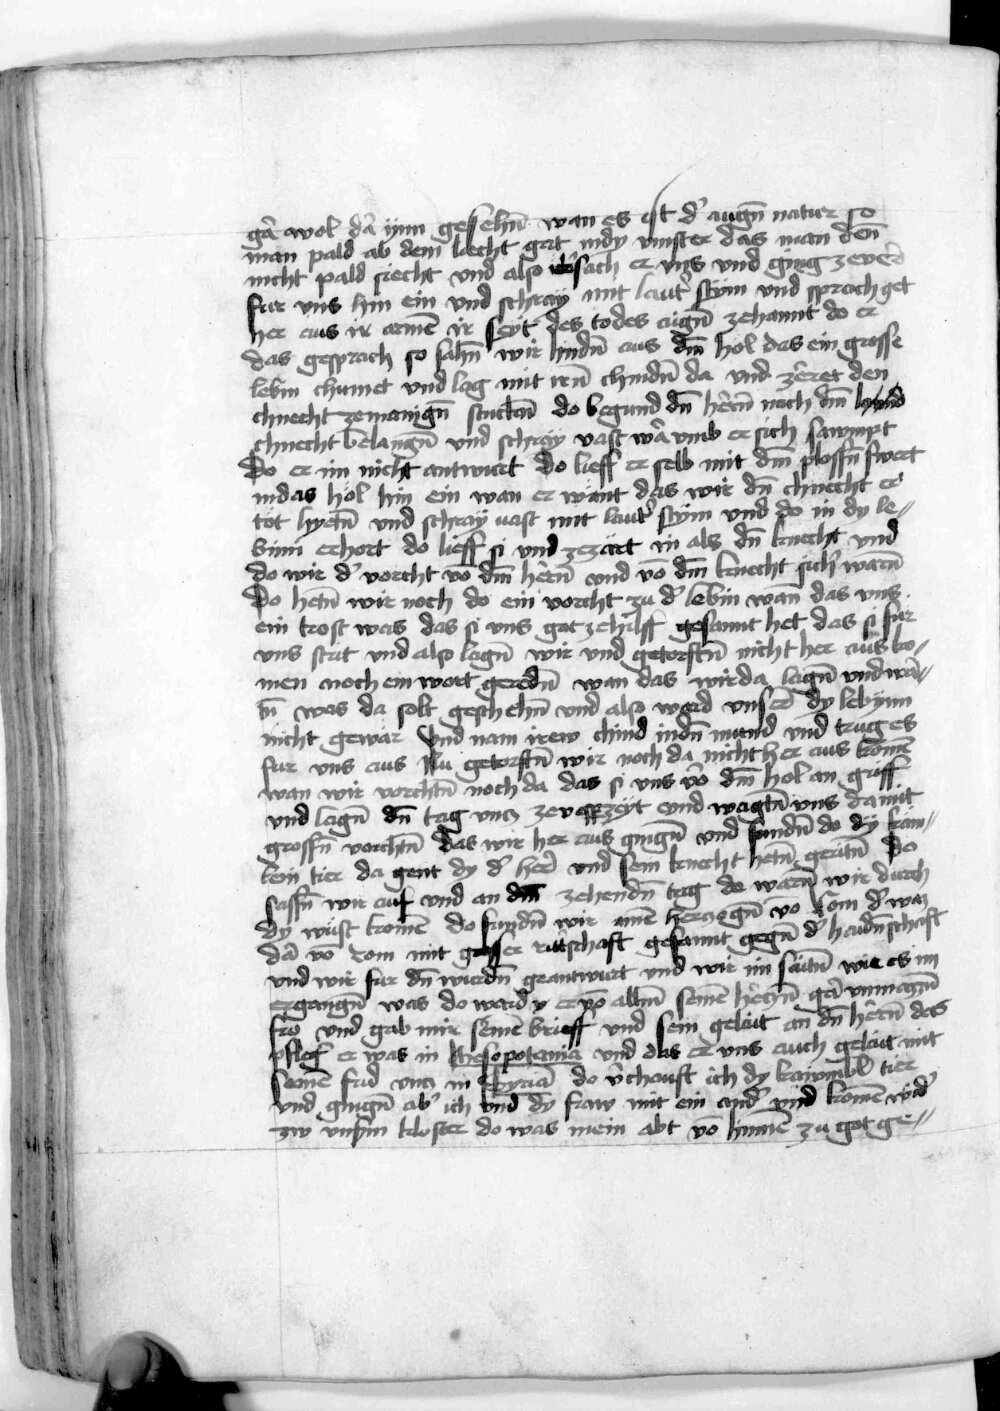 gar wol dar ynn gesehñ wan es ist d' augñ natur so
man pald ab dem liecht get indy vinster das man deñ
nicht pald siecht vnd also übsach er vns vnd ging zeverd
fur vns hin ein vnd schray mit laut' stym vnd sprach get
her aus ir armē ir seyt des todes aigñ zehannt do er
das gesprach so sahñ wir hindñ aus dm̄ hol das ein grosse
lebin chumet vnd lag mit irñ chindñ da vnd zeret den
chnecht zemanigñ stuckñ do begund dñ herñ nach dm̄
chnecht belangñ vnd schray vast war vmb er sich sawmpt
Do er im nicht antwurt do lieff er selb mit dm̄ plossñ swert
indas hol hin ein wan er want das wir dñ chnecht er
töt hyetñ vnd schray vast mit laut' stym vnd do in dy le-
binn erhort do lieff si vnd zezart in als dñ knecht vnd
do wir d' vorcht vō dm̄ herñ vnd vō dm̄ knecht sich' warñ
Do hetñ wir noch do ein vorcht zu d' lebin wan das vns
ein trost was das si vns got zehilff gesannt het das si fur
vns strit vnd also lagñ wir vnd getorstñ nicht her aus ko-
men noch ein wort geredñ wan das wir da lagñ vnd war-
tñ was da solt geschehñ vnd also ward vnser dy lebynn
nicht gewar Vnd nam irew chind indñ mund vnd trug es
fur vns aus Nu getorstñ wir noch da nicht her aus komē
wan wir vorchtñ noch da das si vns vō dm̄ hol an griff
vnd lagñ dñ tag vncz zevesperzeyt vnd wagtñ vns da mit
grossñ vorchtñ das wir her aus gingñ vnd fundñ do dy kam-
lein tier da gent dy d' her vnd sein knecht hetñ geritñ Do
sassñ wir auf vnd an dm̄ zehendñ tag do warñ wir durch
dy wüst komē do fundñ wir ainē herczogñ vō Rom d' waz
da vō rom mit grosser ritt'schaft gesannt gegñ d' haidñschaft
vnd wir fur dñ wurdñ geantwurt vnd wir im saitñ wie es im
ergangñ was do ward er vō allñ seinē herczñ gar vnmassñ
fro vnd gab mir seinē brieff vnd sein gelait an dñ herñ des
pfleg' er was in Mesopotamia vnd das er vns auch gelait mit
seinē frid vncz in Syriā do v'chauft ich dy kaimbl tier
vnd gingñ ab' ich vnd dy fraw mit ein and' vnd komē wid'
zw vns'm kloster do was mein abt vō hinnē zu got ge-